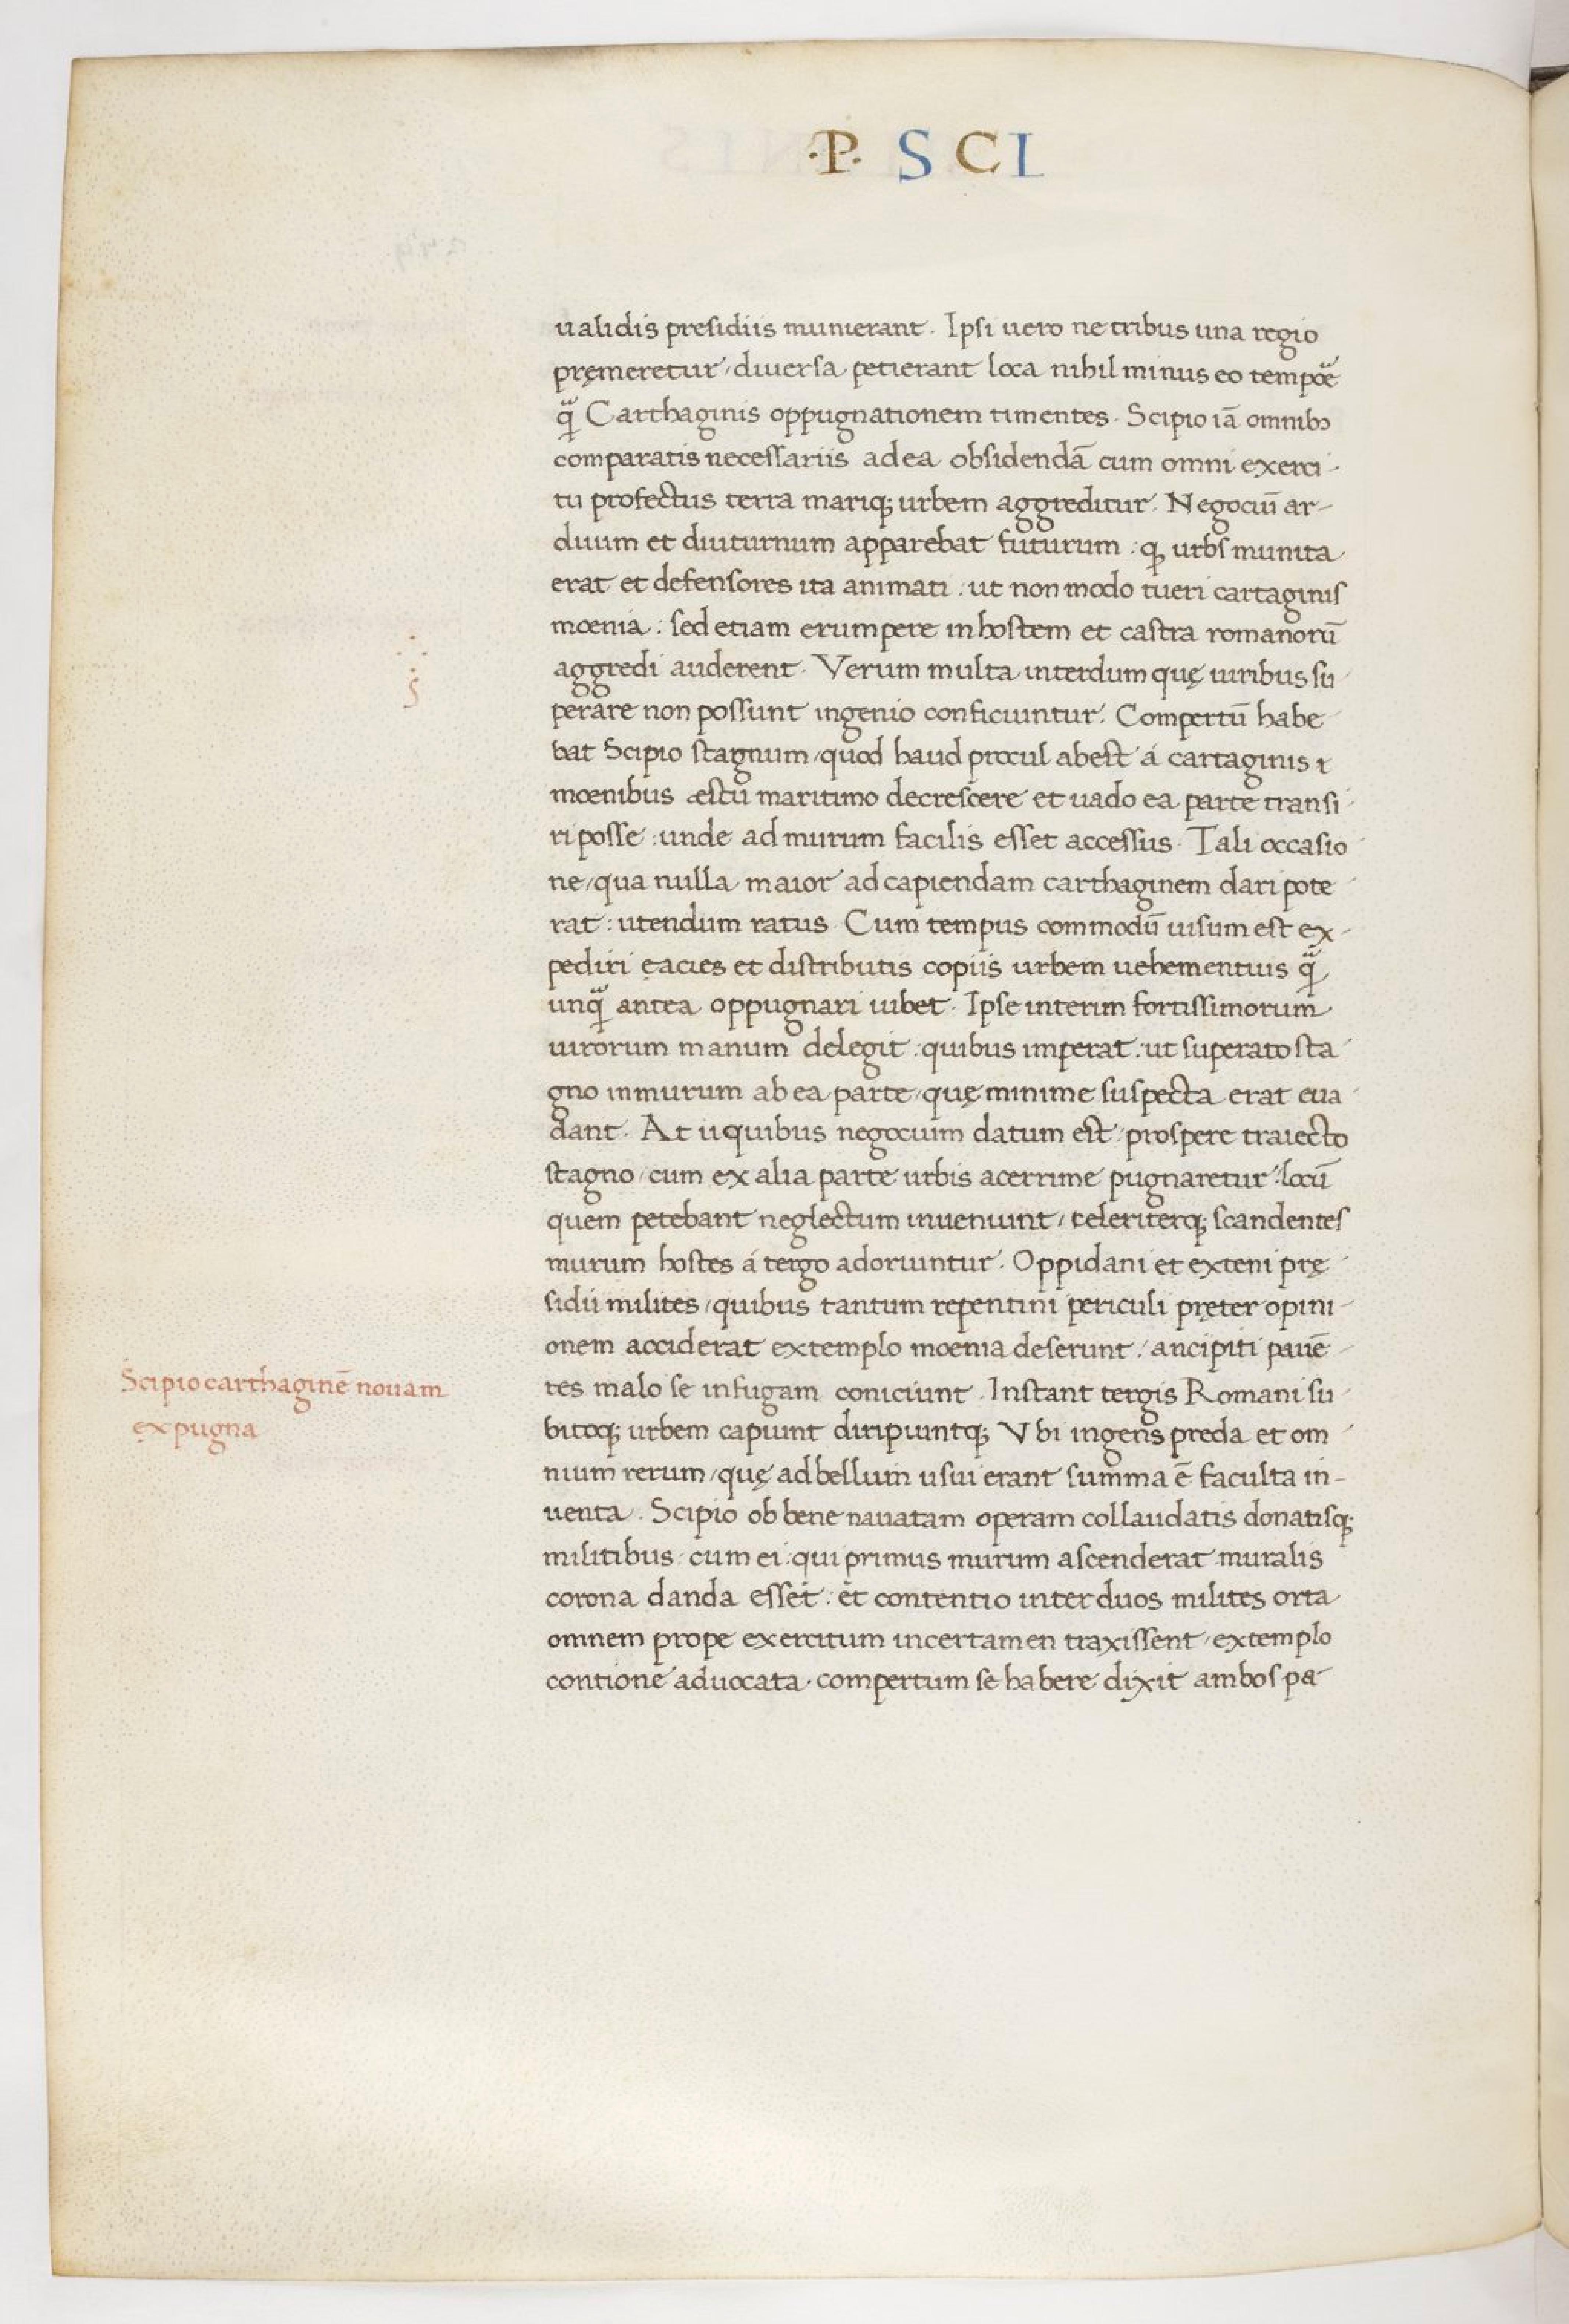 ·P· S C I
ualidis presidiis munierant. Ipsi uero ne tribus una regio
pręmeretur / diuersa petierant loca nihil minus eo tempoē
q̨ͣ Carthaginis oppugnationem timentes. Scipio iā omnibꝫ
comparatis necessariis ad ea obsidendā cum omni exerci-
tu profectus terra mariqꝫ urbem aggreditur. Negociū ar-
duum et diuturnum apparebat futurum : ꝙ urbs munita
erat et defensores ita animati : ut non modo tueri cartaginis
mœnia : sed etiam erumpere in hostem et castra romanorū
aggredi auderent. Verum multa interdum quę uiribus su-
perare non possunt ingenio conficiuntur. Compertū habe-
bat Scipio stagnum / quod haud procul abest á cartaginis
mœnibus æstu maritimo decrescere et uado ea parte transi-
ri posse : unde ad murum facilis esset accessus. Tali occasio-
ne / qua nulla maior ad capiendam carthaginem dari pote-
rat : utendum ratus. Cum tempus commodū uisum est ex-
pediri ęacies et distributis copiis urbem uehementius q̨ͣ
unq̨ͣ antea oppugnari iubet. Ipse interim fortissimorum
uirorum manum delegit : quibus imperat : ut superato sta-
gno in murum ab ea parte / quę minime suspecta erat eua-
dant. At ii quibus negocium datum est : prospere traiecto
stagno / cum ex alia parte urbis acerrime pugnaretur : locū
quem petebant neglectum inueniunt / celeriterqꝫ scandentes
murum hostes á tergo adoriuntur. Oppidani et exteni prę-
sidii milites / quibus tantum repentini periculi pręter opini-
onem acciderat extemplo moenia deserunt : ancipiti pauē-
Scipio carthaginē nouam
expugna
tes malo se in fugam coniciunt. Instant tergis Romani su-
bitoqꝫ urbem capiunt diripiuntqꝫ Vbi ingens preda et om-
nium rerum / quę ad bellum usui erant summa ē faculta in-
uenta. Scipio ob bene nauatam operam collaudatis donatisqꝫ
militibus : cum ei : qui primus murum ascenderat muralis
corona danda esset : et contentio inter duos milites orta
omnem prope exercitum in certamen traxissent / extemplo
contione aduocata. compertum se habere dixit ambos pa-